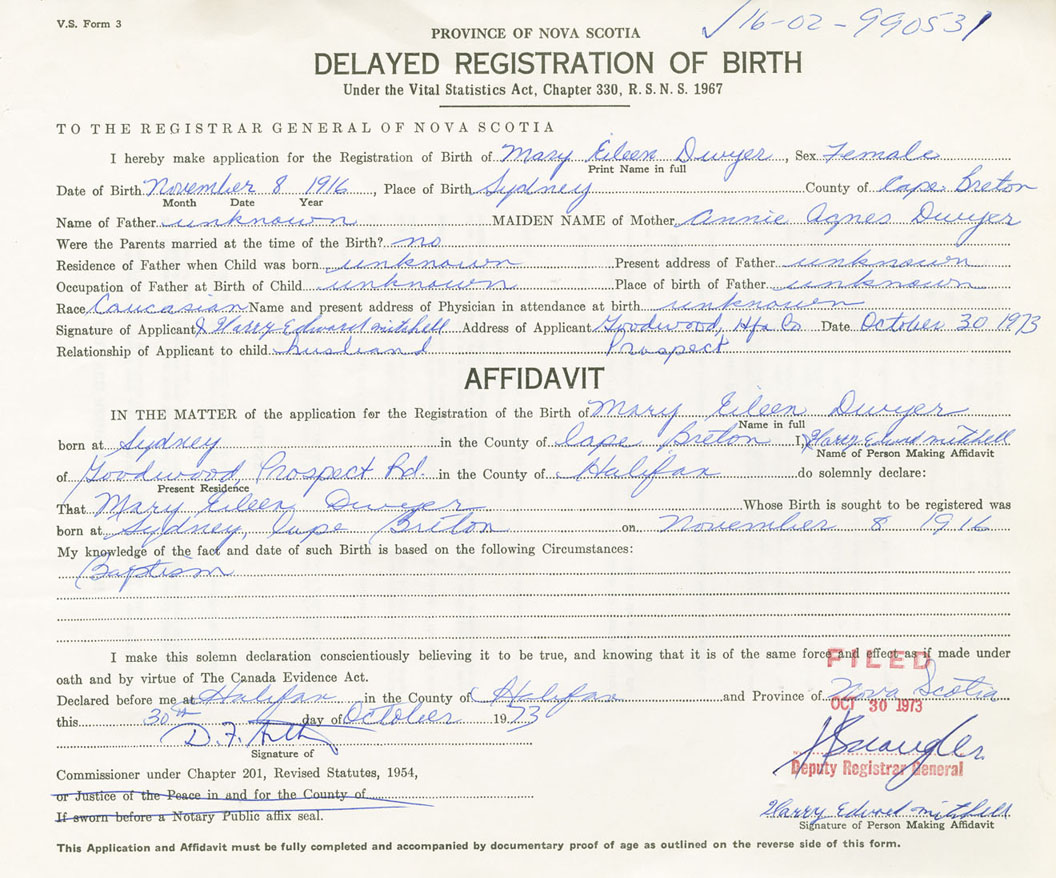 V.S. Form 3
√16-02-990531
PROVINCE OF NOVA SCOTIA
DELAYED REGISTRATION OF BIRTH
Under the Vital Statistics Act, Chapter 330, R.S.N.S. 1967
TO THE REGISTRAR GENERAL OF NOVA SCOTIA
I hereby make application for the Registration of Birth of Mary Eileen Dwyer, Sex Female
Print Name in full
Date of Birth November 8 1916, Place of Birth Sydney County of Cape Breton
Month Date Year
Name of Father unknown MAIDEN NAME of Mother Annie Agnes Dwyer
Were the Parents married at the time of the Birth? no
Residence of Father when Child was born unknown Present address of Father unknown
Occupation of Father at Birth of Child unknown Place of birth of Father unknown
Race Caucasian Name and present address of Physician in attendance at birth unknown
Signature of Applicant X Harry Edward mitchell Address of Applicant Goodwood, Hfx Co Date October 30 1973
Relationship of Applicant to child husband Prospect
AFFIDAVIT
IN THE MATTER of the application for the Registration of the Birth of Mary Eileen Dwyer
Name in full
born at Sydney in the County of Cape Breton I, X Harry Edward mitchell
Name of Person Making Affidavit
of Goodwood, Prospect Rd. in the County of Halifax do solemnly declare:
Present Residence
That Mary Eileen Dwyer Whose Birth is sought to be registered was
born at Sydney, Cape Breton on November 8 1916
My knowledge of the fact and date of such Birth is based on the following Circumstances:
Baptism
I make this solemn declaration conscientiously believing it to be true, and knowing that it is of the same force and effect as if made under
oath and by virtue of The Canada Evidence Act.
FILED
Declared before me at Halifax in the County of Halifax and Province of Nova Scotia
OCT 30 1973
this 30th day of October 1973
D.F.
Signature of
Deputy Registrar General
Commissioner under Chapter 201, Revised Statutes, 1954,
or Justice of the Peace in and for the County of
If sworn before a Notary Public affix seal.
Harry Edward mitchell
Signature of Person Making Affidavit
This Application and Affidavit must be fully completed and accompanied by documentary proof of age as outlined on the reverse side of this form.